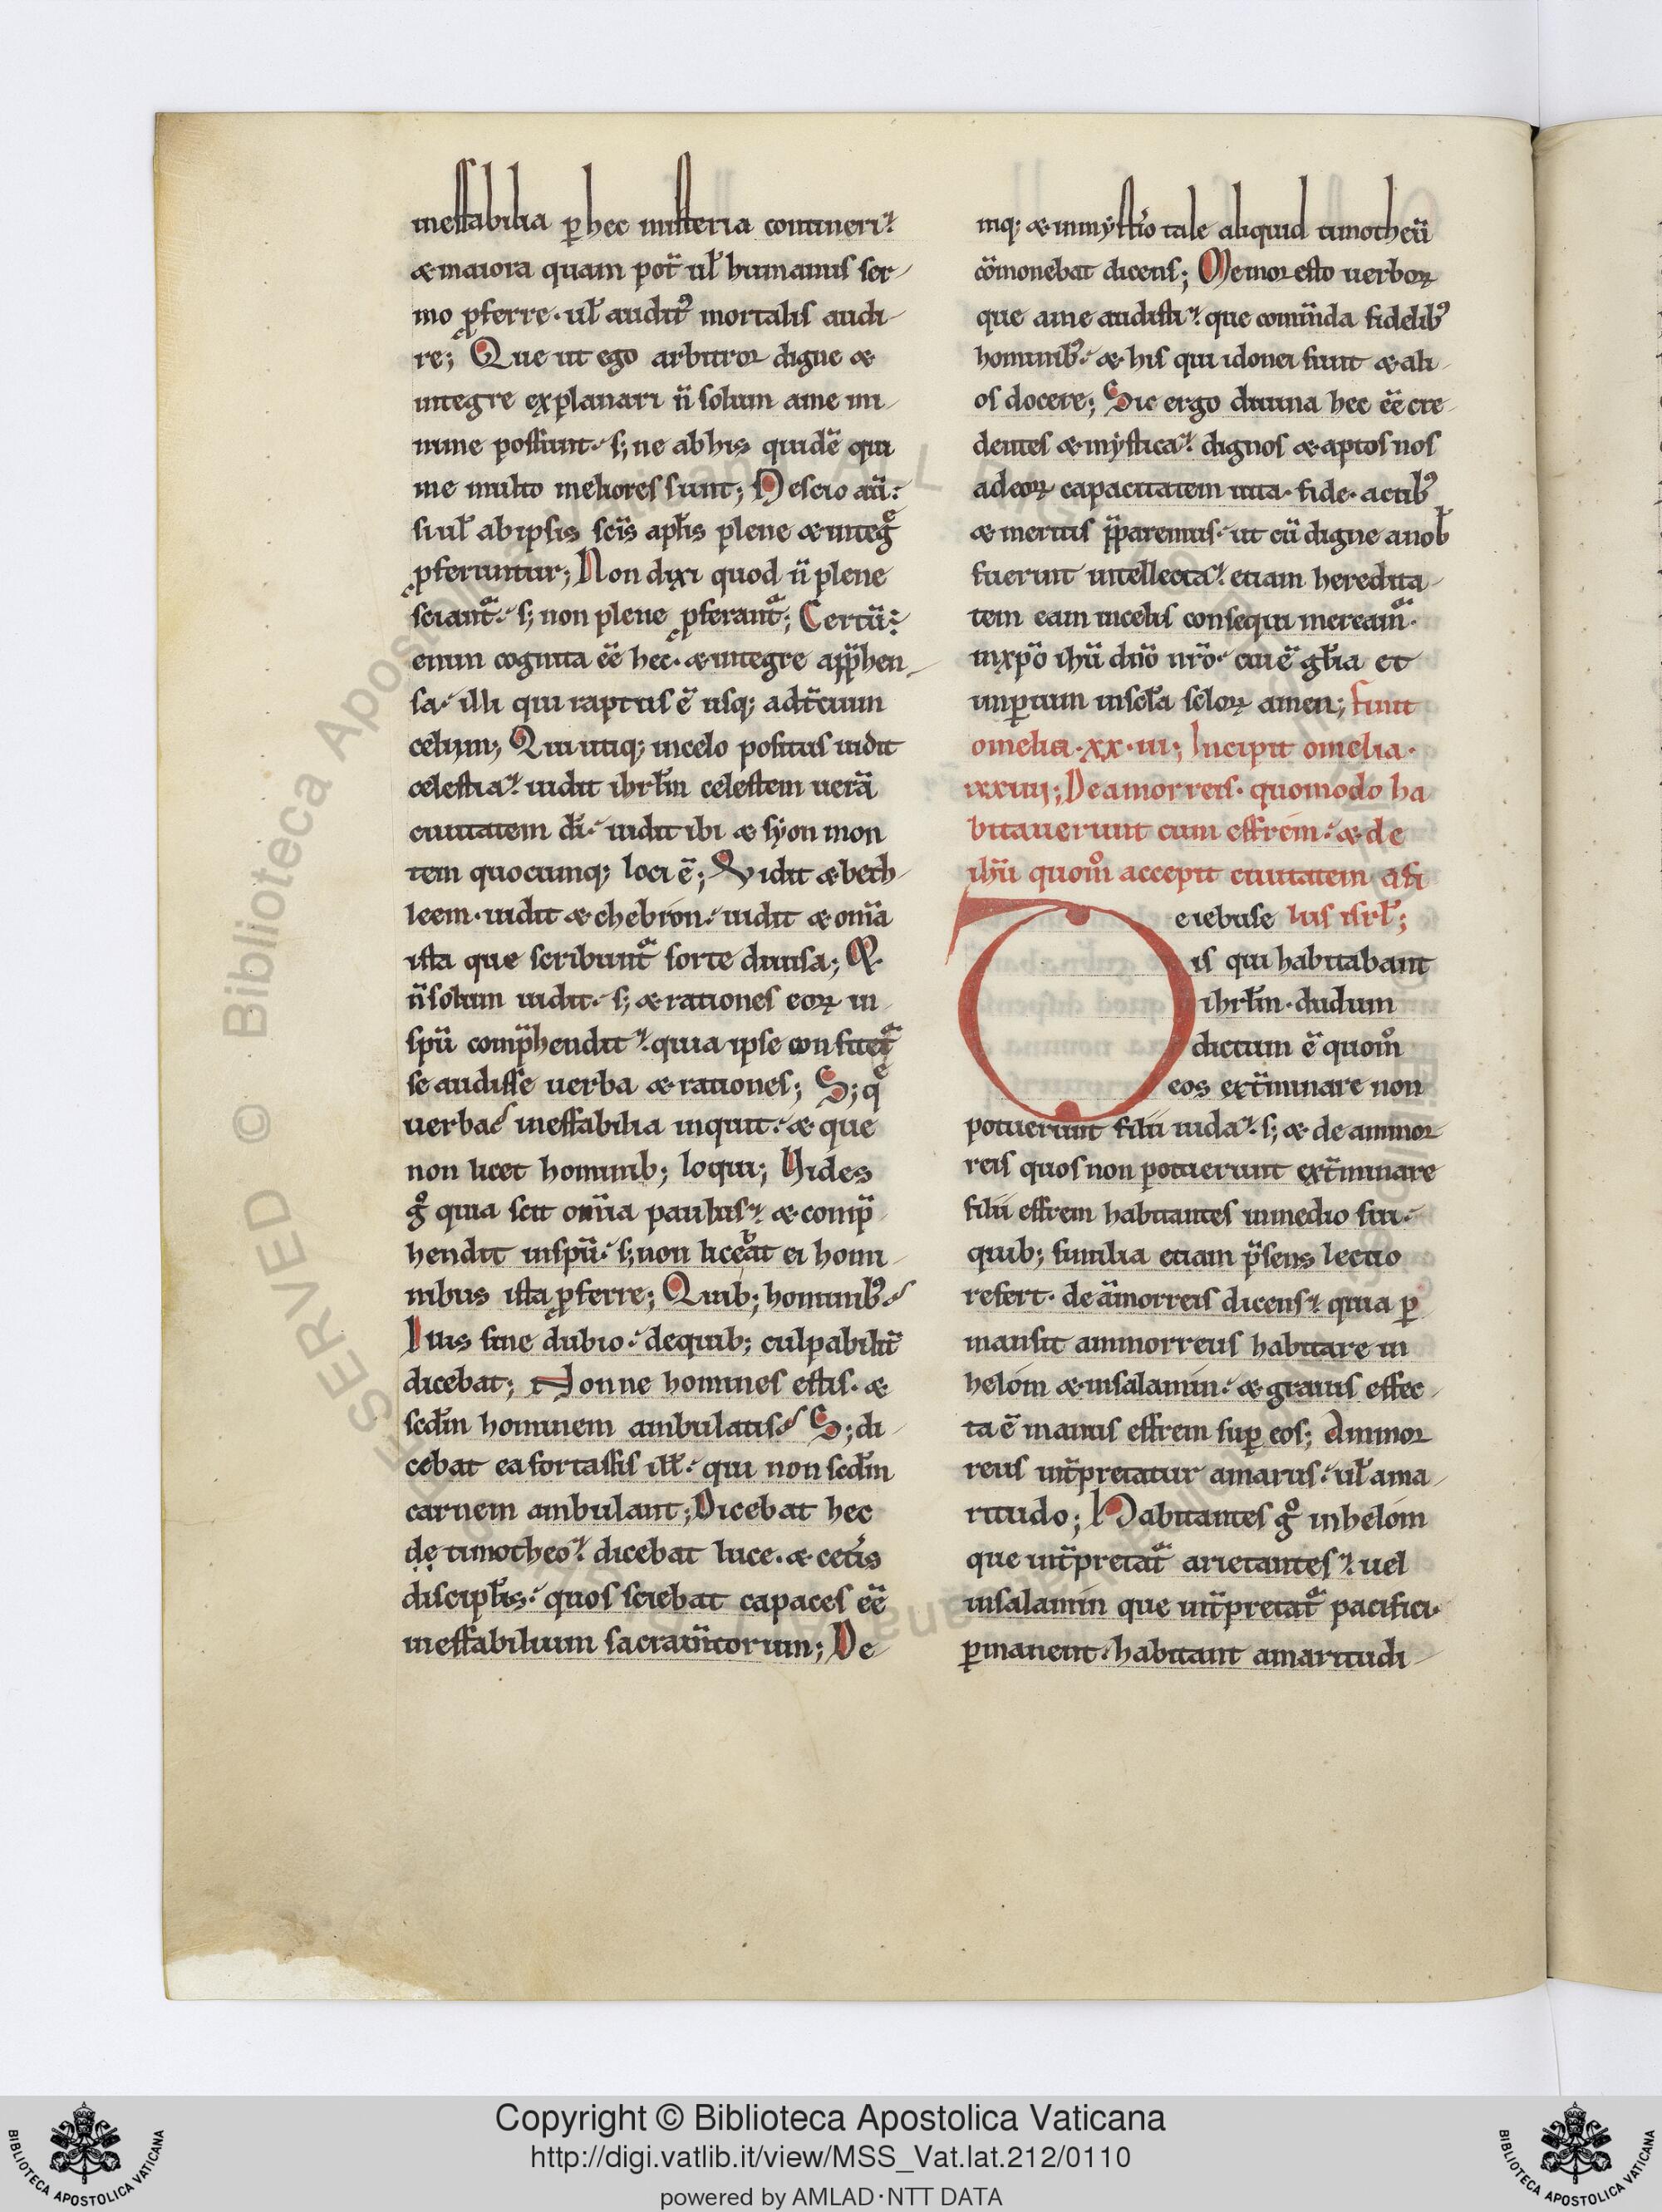 ineffabilia ꝑ hec misteria contineri.
& maiora quam pot̄ ul̄ humanus ser-
mo ꝓferre. ul̄ auditꝰ mortalis audi-
re; Que ut ego arbitror digne &
integre explanari n̄ solum a me mi-
nime possunt. s; ne ab his quidē qui
me multo meliores sunt; Nescio aū.
si ul̄ ab ipsis sc̄is apl̄is plene & integͤ
ꝓferuntur; Non dixi quod n̄ plene
sciantᷓ. s; non plene ꝓferantᷓ; Certū.
enim cognita eē hec. & integre app̄hen-
sa. illi qui raptus ē usq; ad t̄cium
celum; Qui utiq; in celo positus uidit
celestia. uidit ihrl̄m celestem uerā
ciuitatem dī. uidit ibi & syon mon
tem quocumq; loci ē; Vidit & beth-
leem. uidit & chebron. uidit & om̄ia
ista que scribuntᷓ sorte diuisa; &
n̄ solum uidit. s; & rationes eoꝝ in
spū comp̄hendit. quia ipse confitetᷓ
se audisse uerba & rationes; S; qͤ
uerba ineffabilia inquit. & que
non licet hominib; loqui; Vides
gͦ quia scit om̄ia paulus. & comp̄-
hendit in spū. s; non licebat ei homi-
nibus ista ꝓferre; Quib; hominibꝰ
Iuis sine dubio. de quib; culpabilit̄
dicebat; Nonne homines estis. &
scd̄m hominem ambulatis S; di-
cebat ea fortassis ill̄. qui non scd̄m
carnem ambulant; Dicebat hec
de timotheo. dicebat luce. & cet̄is
discipl̄is. quos sciebat capaces eē
ineffabilium sacram̄torum; De-
niq; & in mysterio tale aliquid timotheū
cōmonebat dicens; Memor esto uerboꝝ
que a me audisti. que com̄nda fidelibꝰ
hominibꝰ. & his qui idonei sunt & ali-
os docere; Sic ergo diuina hec eē cre-
dentes & mystica. dignos & aptos nos
ad eoꝝ capacitatem uita. fide. actibꝰ
& meritis p̄paremus. ut cū digne a nob̄
fuerint intellecta. etiam heredita-
tem eam in celis consequi mereamᷓ.
in xp̄o ihū dn̄o nr̄o. cui ē gl̄ia et
imꝑium in sc̄la sc̄loꝝ amen; finit
omelia. xx. iii; Incipit omelia.
xxiiii; De amorreis. quomodo ha
bitauerunt cum effrem. & de
ihū quom̊ accepit ciuitatem a fi
De iebuse liis isrl̄;
is qui habitabant
ihrl̄m. dudum
dictum ē quom̊
eos ext̄minare non
potuerunt filii iuda. s; & de ammor-
reis quos non potuerunt ext̄minare
filii effrem habitantes in medio sui.
quib; similia etiam p̄sens lectio
refert. de amorreis dicens. quia ꝑ
mansit ammorreus habitare in
helom & in salamin. & grauis effec-
ta ē manus effrem suꝑ eos; Ammor
reus int̄pretatur amarus. ul̄ ama-
ritudo; Habitantes gͦ in helom
que int̄pretatᷓ arietantes. uel
in salamin que int̄pretatᷓ pacifici.
ꝑmanent. habitant amaritudi-
Copyright © Biblioteca Apostolica Vaticana
http://digi.vatlib.it/view/MSS_Vat.lat.212/0110
powered by AMLAD·NTT DATA
BIBLIOTECA APOSTOLICA VATICANA
BIBLIOTECA APOSTOLICA VATICANA